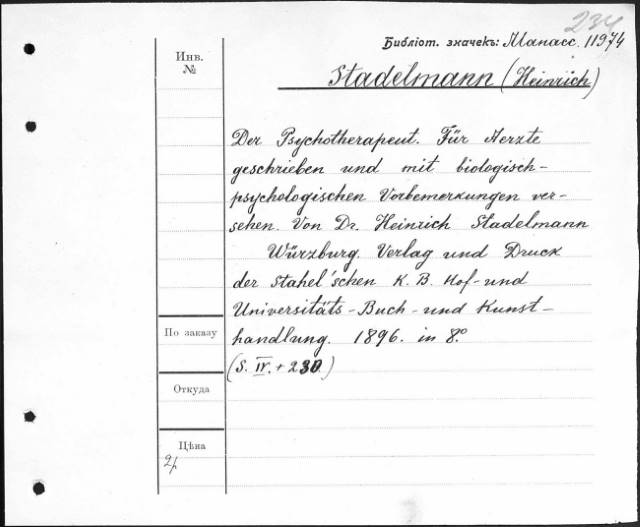 234
Библіот. значекъ: Манасс. 11974
Инв.
№
Stadelmann (Heinrich)
Der Psychotherapeut. Für Aerzte
geschrieben und mit biologisch-
psychologischen Vorbemerkungen ver-
sehen. Von Dr. Heinrich Stadelmann
Würzburg. Verlag und Druck
der Stahel'schen K. B. Hof- und
Universitäts-Buch- und Kunst-
handlung. 1896. in 8°.
(S. IV. + 230.)
По заказу
Откуда
Цѣна